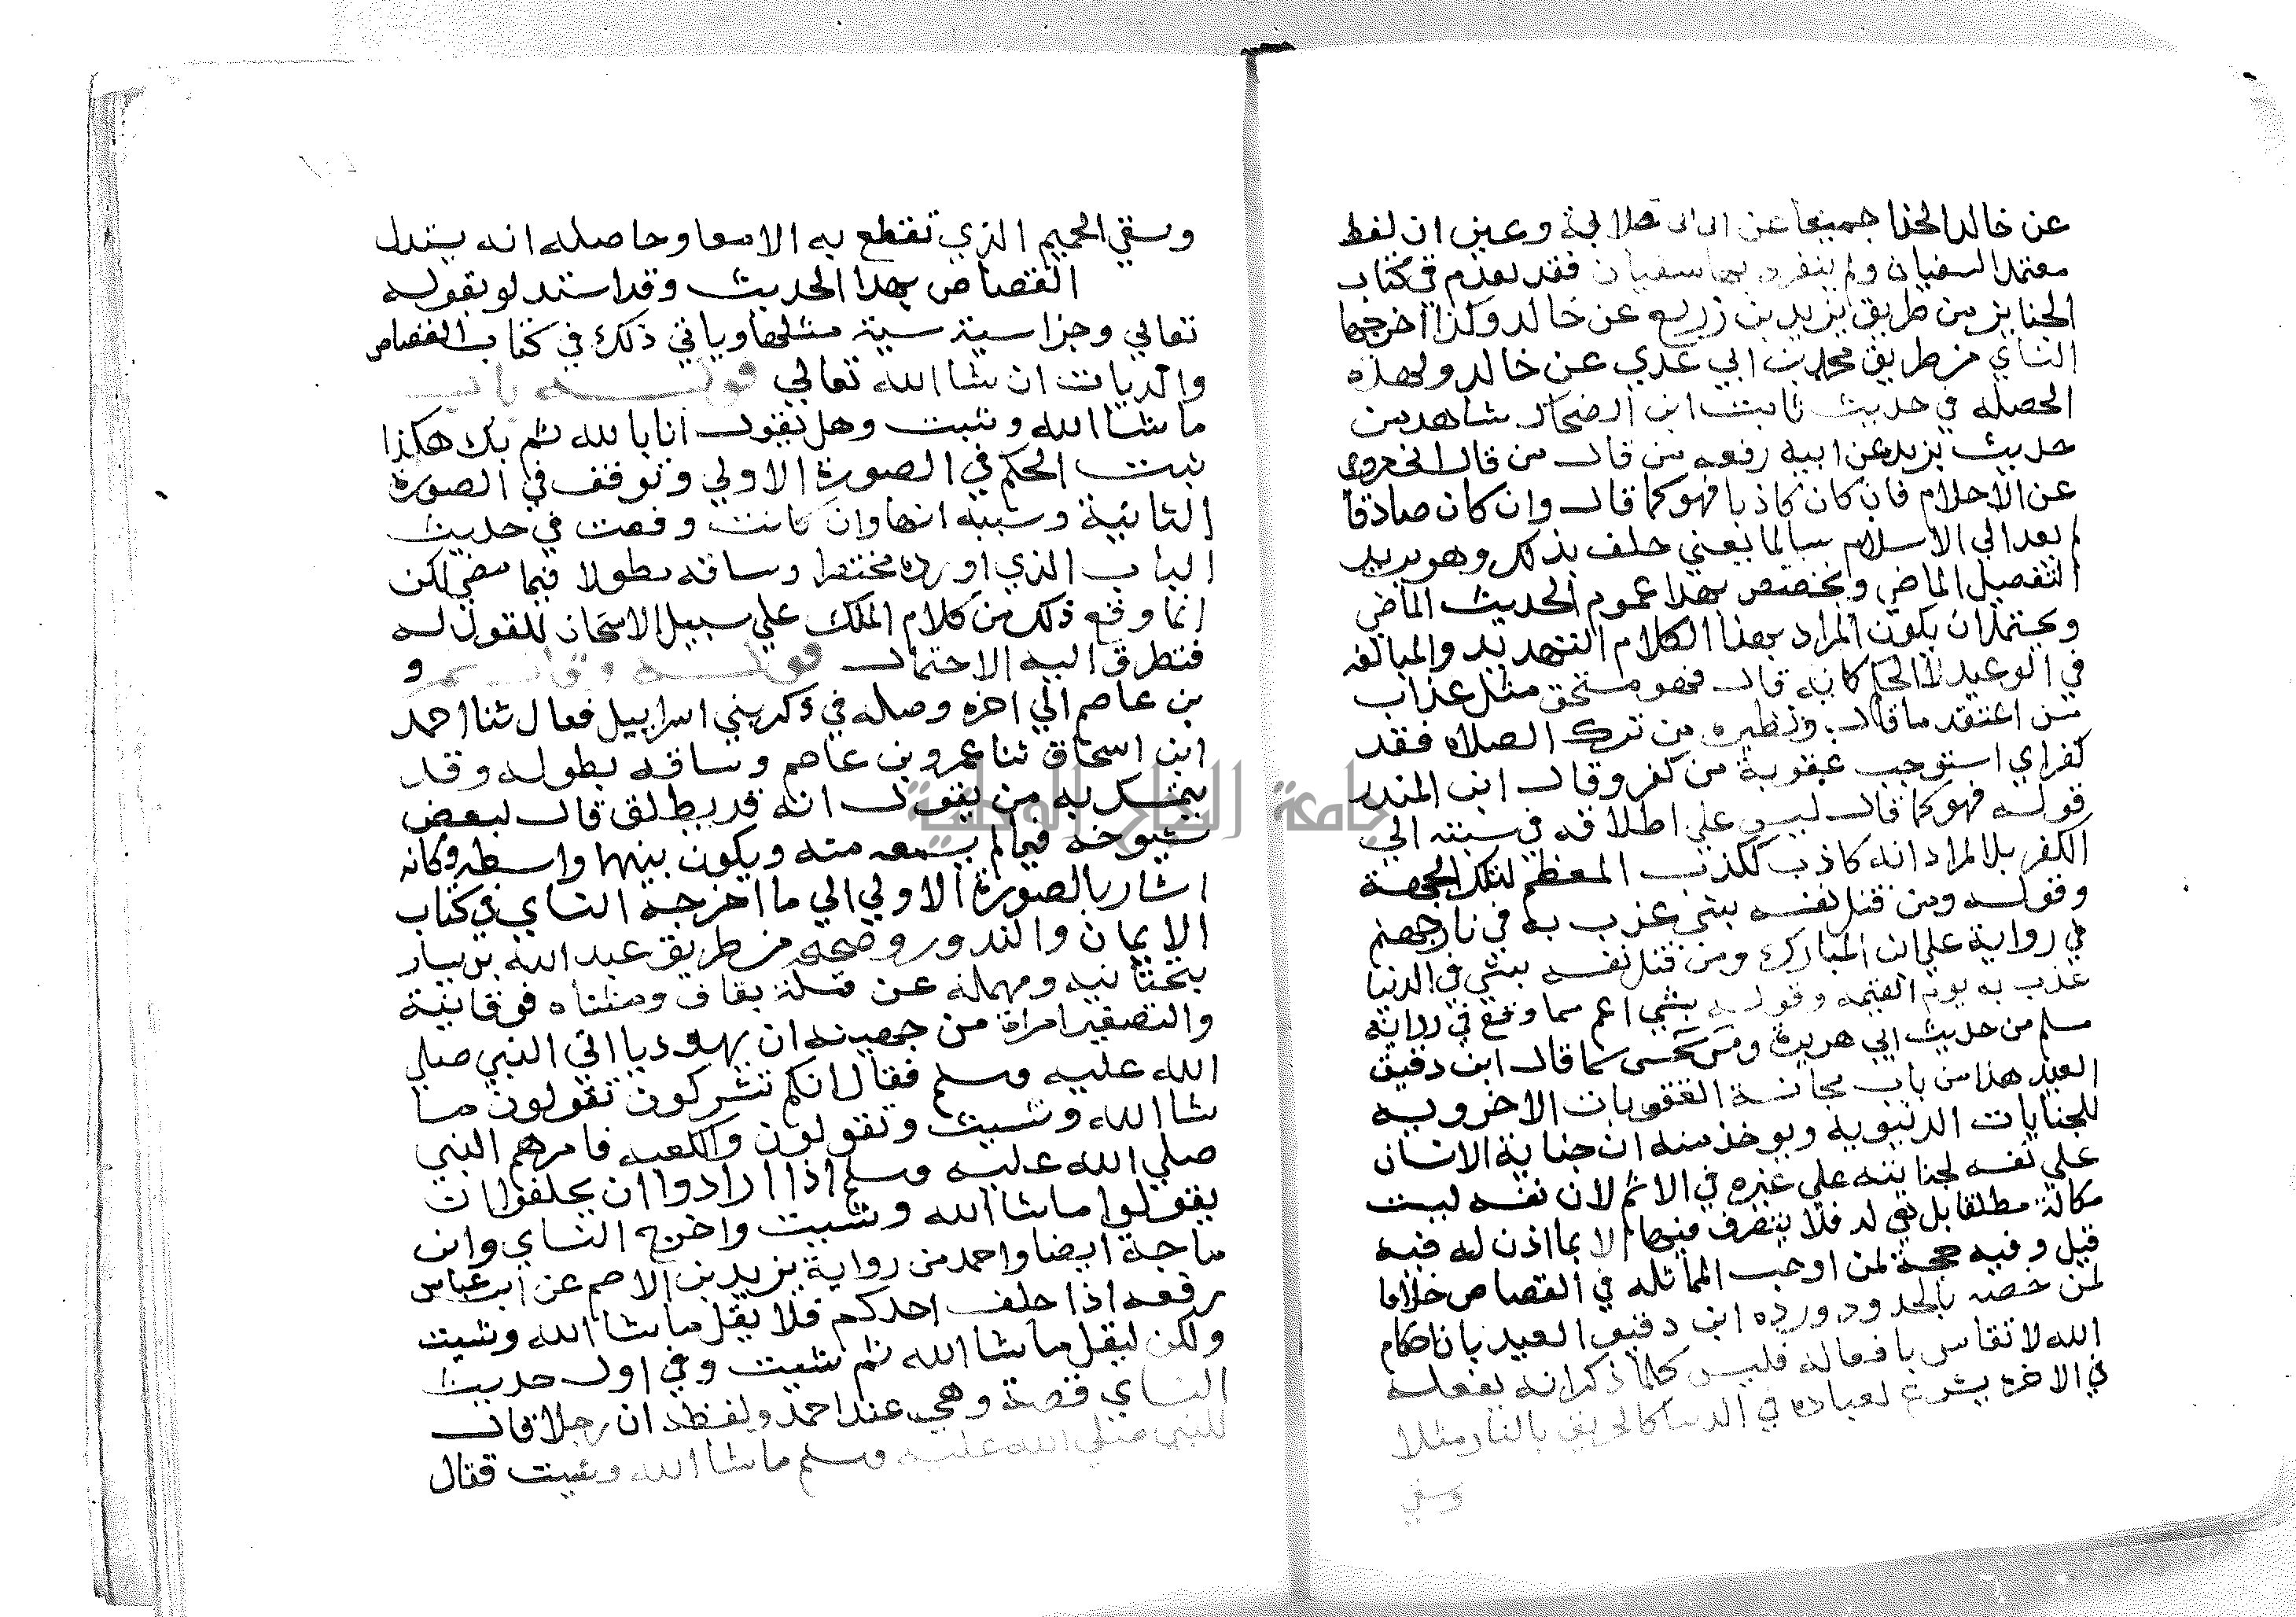 عن خالد الحذا جميعا عن ابى قلابة وعين ان لفظ
معتمدا لسفيان ولم ينفرد بها سفيان فقد تقدم في كتاب
الجنايز من طريق يزيد بن زريع عن خالد وكذا اخرجها
النساي من طريق محمد بن ابي عدي عن خالد ولهذه
الخصله في حديث ثابت ابن الضحاك شاهد من
حديث بريده عن ابيه رفعه من قال من قال اني بري
عن الاسلام فان كان كاذبا فهو كما قال وان كان صادقا
لم يعد الي الاسلام سالما يعني حلف بذلك وهو يريد
التفصيل الماضي ويخصص بهذا عموم الحديث الماضي
ويحتمل ان يكون المراد بهذا الكلام التهديد والمبالغه
في الوعيد لا الحكم كانه قال فهو مستحق مثل عذاب
من اعتقد ما قال ونظيره من ترك الصلاه فقد
كفر اي استوجب عقوبة من كفر وقال ابن المنذر
قوله فهو كما قال ليس علي اطلاقه في سبته الي
الكفر بلا المراد انه كاذب ككذب المعظم لتلك الجهة
وقوله ومن قتل نفسه بشى عذب به في نار جهنم
في رواية علي ابن المبارك ومن قتل نفسه بشي في الدنيا
عذب به يوم القيمه وقوله بشي اعم مما وقع في رواية
مسلم من حديث ابي هريرة ومن تحسى سما قال ابن دقيق
العيد هذا من باب مجانسة العقوبات الاخرويه
للجنايات الدنيوية ويوخذ منه ان جناية الانسان
علي نفسه لجنايته علي غيره في الاثم لان نفسه ليست
مكالة مطلقا بل هي لله فلا يتصرف فيها الا بما اذن له فيه
قيل وفيه حجة لمن اوجب المماثله في القصاص خلافا
لمن خصه بالحدود ورده ابن دقيق العيد بان احكام
الله لا تقاس بافعاله فليس كلما ذكر انه يفعله
في الاخره يشرع لعباده في الدنيا كالحريق بالنار مثلا
وسقي
وسقي الحميم الذي تقطع به الامعا وحاصله انه يستدل
القصاص بهذا الحديث وقد استدلو بقوله
تعالي وجزا سية سية مثلها وياتي ذلك في كتاب القصاص
والديات ان شا الله تعالي قوله باب
ما شا الله وشيت وهل يقول انا بالله ثم بك هكذا
ثبت الحكم في الصورة الاولي وتوقف في الصورة
الثانية وسببه انها وان كانت وقعت في حديث
الباب الذي اورده مختصرا وساقه مطولا فيما مضي لكن
انما وقع ذلك من كلام الملك علي سبيل الامتحان للقول له
فتطرق اليه الاحتمال قوله وقال عمرو
بن عاصم الي اخره وصله في ذكر بني اسراييل فقال ثنا احمد
ابن اسحاق ثنا عمرو بن عاصم وساقه بطوله وقد
يتمسك به من يقول انه قد يطلق قال لبعض
شيوخه فيما لم يسمعه منه ويكون بينهما واسطه وكانه
اشار بالصورة الاولي الي ما اخرجه النساي في كتاب
الايمان والندور وصححه من طريق عبد الله بن يسار
بتحتانيه ومهملة عن قتيلة بقاف ومثناه فوقانية
والتصغير امراة من جهينه ان يهوديا اتي النبي صلي
الله عليه وسلم فقال انكم تشركون تقولون ما
شا الله وشيت وتقولون والكعبه فامرهم النبي
صلي الله عليه وسلم اذا ارادوا ان يحلفوا ان
يقولوا ما شا الله وشيت واخرج النساي وابن
ماجة ايضا واحمد من رواية يزيد بن الاصم عن ابن عباس
رفعه اذا حلف احدكم فلا يقل ما شا الله وشيت
ولكن ليقل ما شا الله ثم شيت وفي اول حديث
النساي قصة وهي عند احمد ولفظه ان رجلا قال
للنبي صلي الله عليه وسلم ما شا الله وشيت فقال